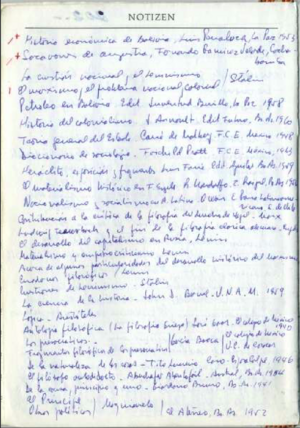 NOTIZEN
+ Historia económica de Bolivia, Luis Peñaloza, La Paz 1953
+ Socavones de angustia, Fernando Ramírez Velarde, Cocha
bamba
La cuestión nacional y el leninismo / Stalin
El marxismo y el problema nacional y colonial
Petróleo en Bolivia. Edit. Juventud La Paz 1958
Historia del colonialismo. J. Arnault. Edit. Futuro, Bs. As. 1960
Teoría general del Estado. Carré de Malberg. F.C.E. México, 1948
Diccionario de sociología. Fairchild Pratt. F.C.E. México, 1949
Heráclito, exposición y fragmentos. Luis Farré. Edit. Aguilar Bs. As. 1959
El materialismo histórico en F. Engels. R. Mondolfo. E. Raigal, Bs. As. 1956
Nacionalismo y socialismo en A. Latina.
Contribución a la crítica de la filosofía del derecho de Hegel. Marx
Ludwig Feuerbach y el fin de la filosofía clásica alemana. Engels
El desarrollo del capitalismo en Rusia, Lenin
Materialismo y empiriocriticismo Lenin
Acerca de algunas particularidades del desarrollo histórico del marxismo
Cuadernos filosóficos / Lenin
Cuestiones de leninismo Stalin
La ciencia de la historia. John D. Bernal. U.N.A.M. 1959
Lógica. Aristóteles
Antología filosófica (La filosofía griega) José Gaos. El colegio de México
1940
Los presocráticos. García Bacca / El colegio de México
Fragmentos filosóficos de los presocráticos / U.C. de Caracas
De la naturaleza de las cosas - Tito Lucrecio Caro. 1946
El filósofo autodidacto. Abentofail. Bs. As. 1954
De la causa, principio y uno. Giordano Bruno, Bs. As. 1941
El Príncipe
Obras políticas / Maquiavelo / El Ateneo, Bs. As. 1952